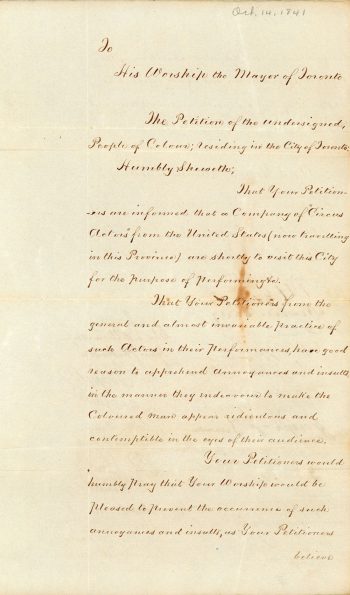 Oct. 14, 1841
To
His Worship the Mayor of Toronto
The Petition of the undersigned,
People of Colour; residing in the City of Toronto;
Humbly Sheweth;
That Your Petition-
ers are informed that a Company of "Circus
Actors" from the United States (now travelling
in this Province) are shortly to visit this City
for the purpose of performing &c.
That Your Petitioners from the
general and almost invariable practice of
such Actors in their performances, have good
reason to apprehend annoyances and insults
in the manner they endeavour to make the
Coloured man appear ridiculous and
contemptible in the eyes of their audience.
Your Petitioners would
humbly pray that Your Worship would be
pleased to prevent the occurrence of such
annoyances and insults, as Your Petitioners
believe